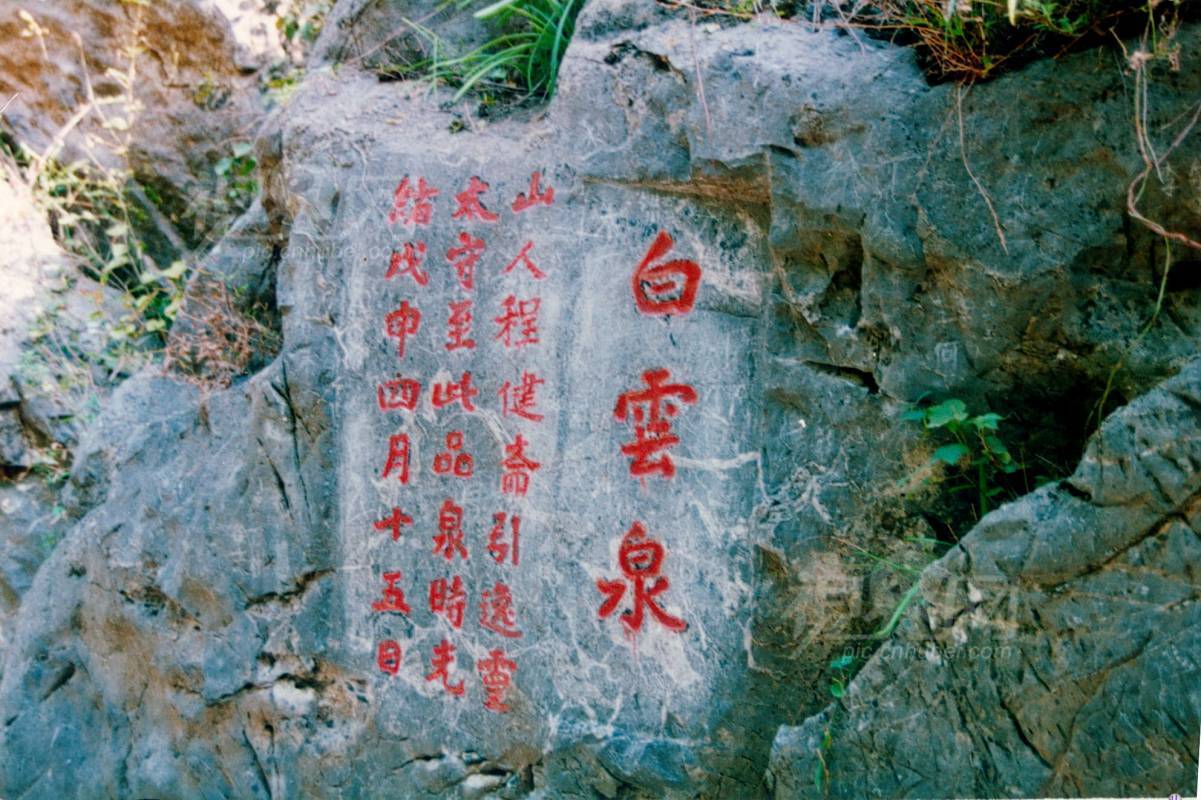 白雲泉
山人程健斎引逸霊
太守至此品泉時光
緒戊申四月十五日
pic.cnhubei.com